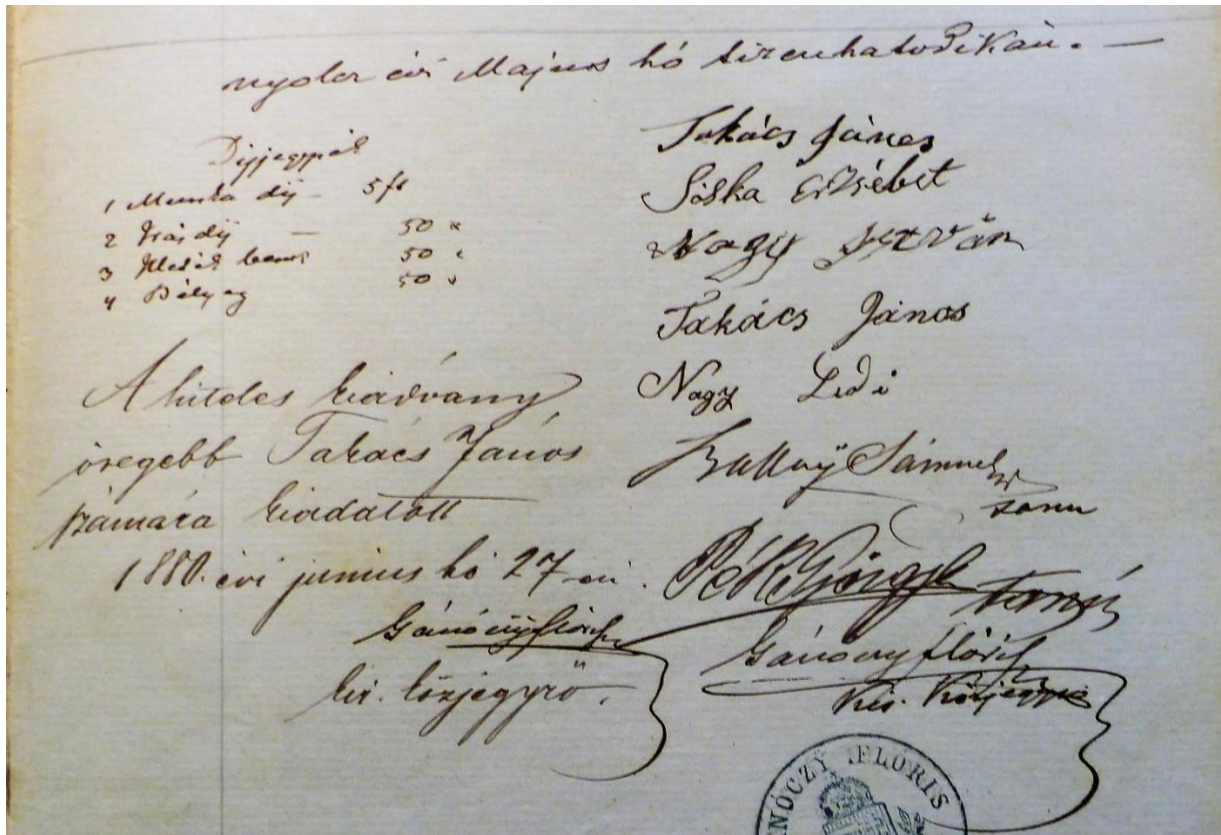 nyolcz évi Majus hó tizenhatodikán. —
Díjjegyzék
1 Munka díj — 5 ft
2 Irás díj — 50 "
3 50 "
4 Bélyeg 50 "
Takács János
Siska Erzsébet
Nagy István
Takács János
Nagy Lidi
Sámuel
tanu
Pék György tanú
Gánóczy Flóris
kir. közjegyző
A hiteles kiadvány
öregebb Takács János
számára kiadatott
1880. évi junius hó 27-én.
Gánóczy Flóris
kir. közjegyző.
NÓCZY FLÓRIS